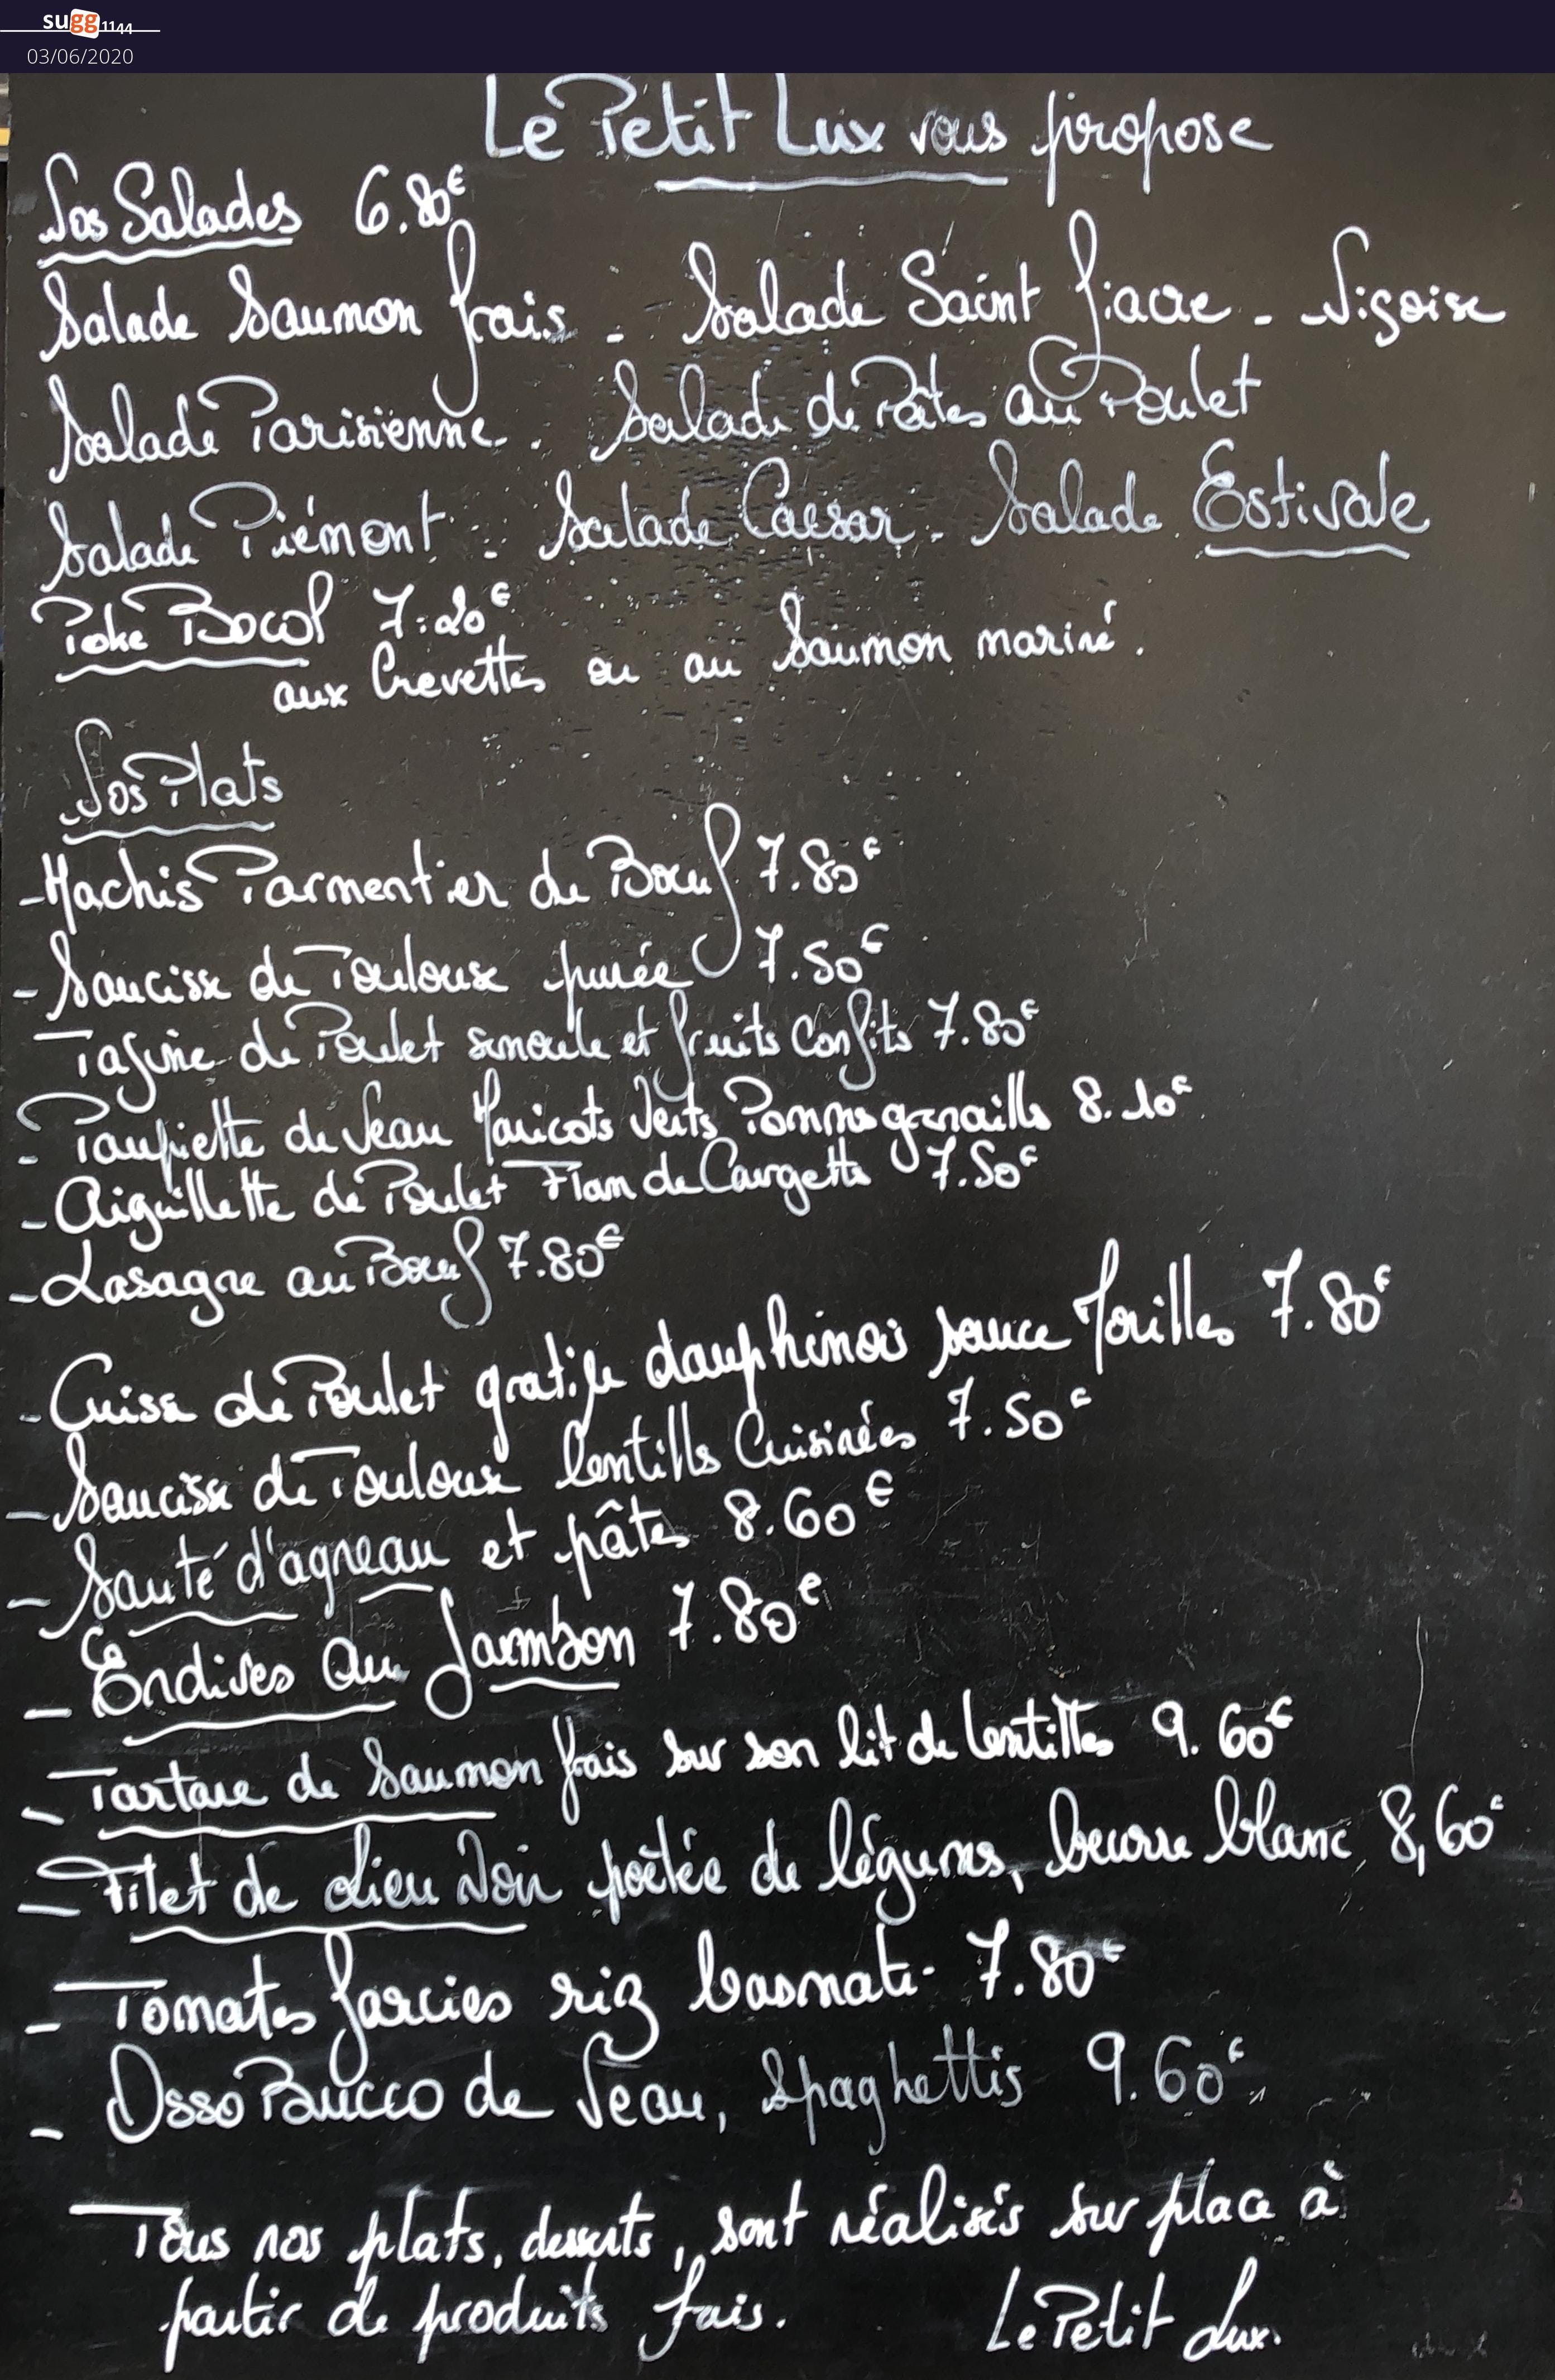 sugg1144
03/06/2020
Le Petit Lux vous propose
Nos Salades 6.80€
Salade Saumon frais - Salade Saint Fiacre - Niçoise
Salade Parisienne - Salade de Pâtes au Poulet
Salade Piémont - Salade Caesar - Salade Estivale
Poke Bowl 7.20€
aux Crevettes ou au Saumon mariné.
Nos Plats
- Hachis Parmentier de Boeuf 7.80€
- Saucisse de Toulouse purée 7.50€
Tajine de Poulet semoule et fruits confits 7.80€
- Paupiette de Veau Haricots Verts Pommes grenailles 8.10€
- Aiguillette de Poulet Flan de Courgette 7.50€
- Lasagne au Boeuf 7.80€
- Cuisse de Poulet gratin dauphinois sauce Morilles 7.80€
- Saucisse de Toulouse lentilles Cuisinées 7.50€
- Sauté d'agneau et pâtes 8.60€
- Endives au Jambon 7.80€
- Tartare de Saumon frais sur son lit de lentilles 9.60€
- Filet de Lieu Noir poêlée de légumes, beurre blanc 8,60€
- Tomates farcies riz basmati - 7.80€
- Osso Bucco de Veau, Spaghettis 9.60€
Tous nos plats, desserts, sont réalisés sur place à
partir de produits frais. Le Petit Lux.